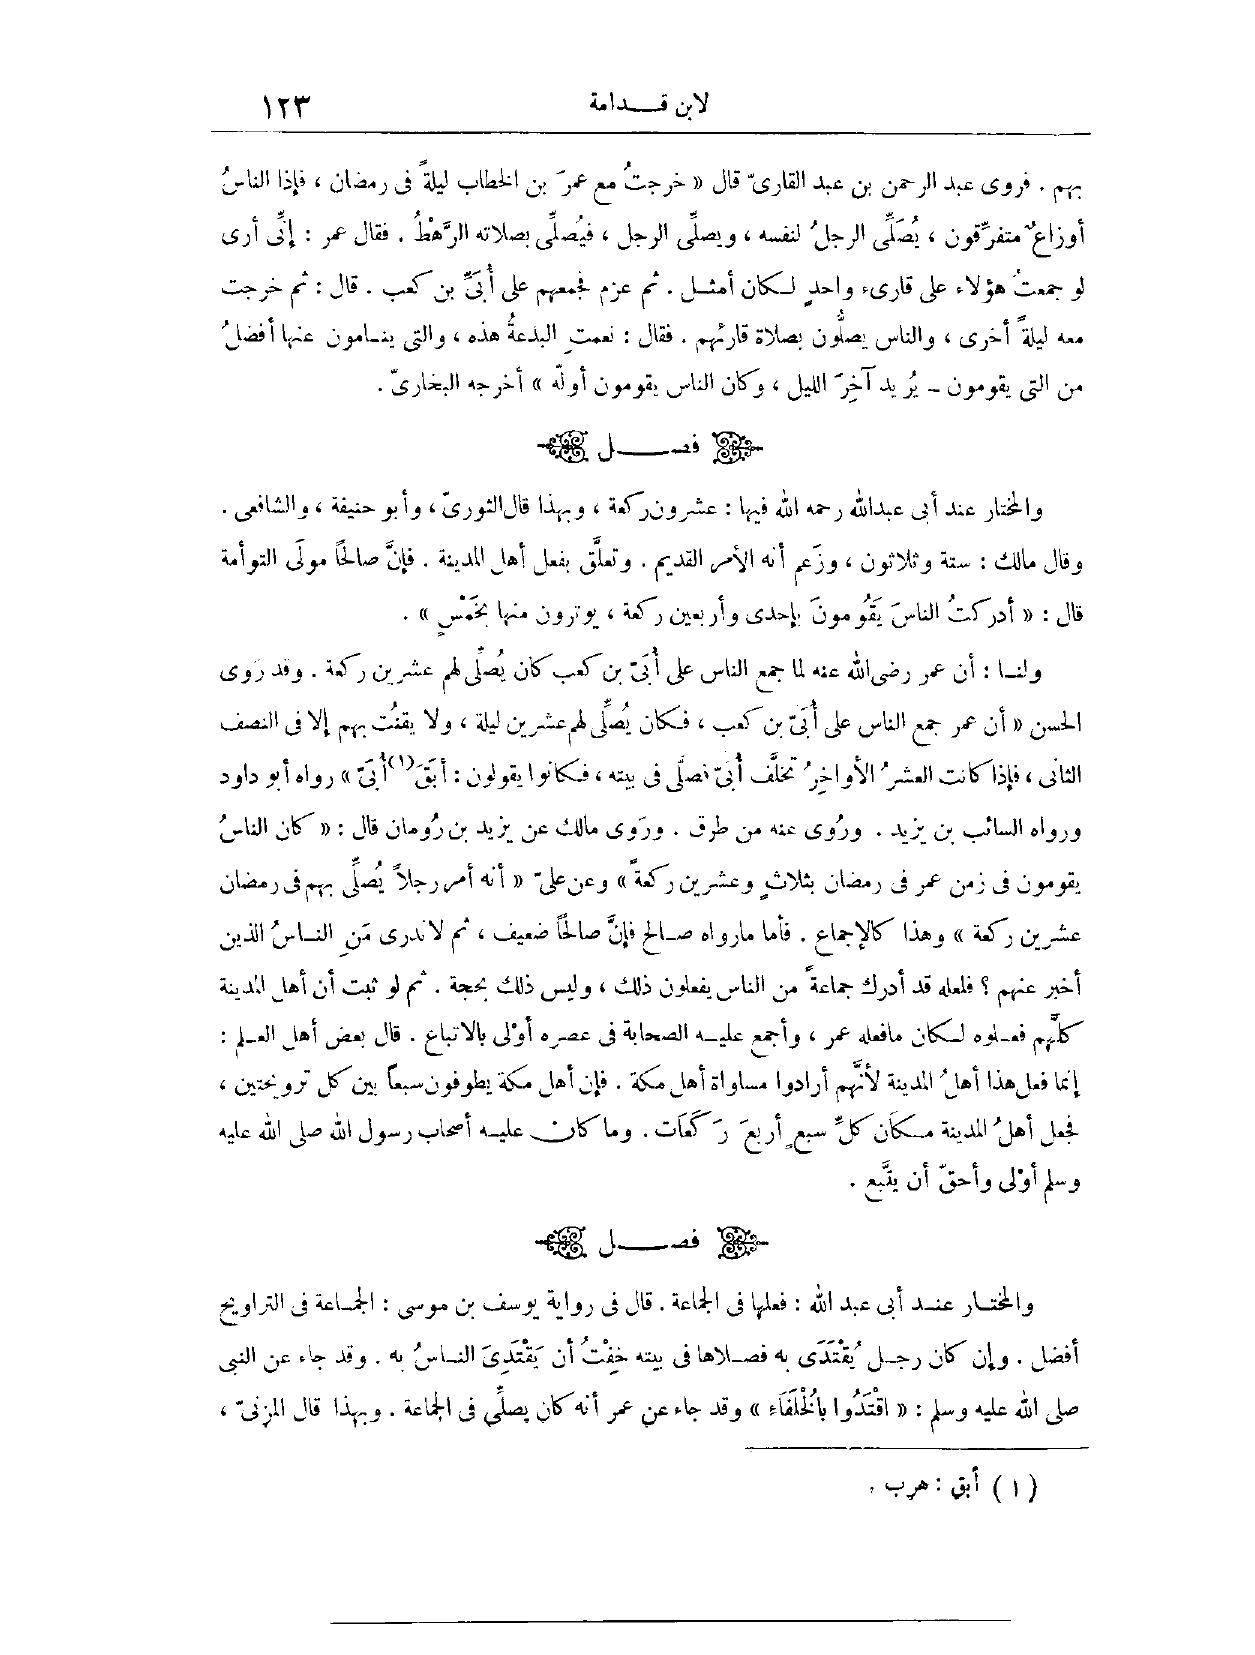 لابن قـدامة ١٢٣
بهم . فروى عبد الرحمن بن عبد القارىّ قال « خرجتُ مع عمرَ بن الخطاب ليلةً فى رمضان ، فإذا الناسُ
أوزاعٌ متفرِّقون ، يُصَلِّى الرجلُ لنفسه ، ويصلِّى الرجل ، فيُصلِّى بصلاته الرَّهْطُ . فقال عمر : إنِّى أرى
لو جمعتُ هؤلاء على قارىء واحدٍ لـكان أمثـل . ثم عزم فجمعهم على أُبَىِّ بن كعب . قال : ثم خرجت
معه ليلةً أخرى ، والناس يصلُّون بصلاة قارئهم . فقال : نعمتِ البدعةُ هذه ، والتى ينـامون عنها أفضلُ
من التى يقومون – يُريد آخِرَ الليل ، وكان الناس يقومون أولّه » أخرجه البخارىّ .
فصـــل
والمختار عند أبى عبدالله رحمه الله فيها : عشرون ركعة ، وبهذا قال الثورىّ ، وأبو حنيفة ، والشافعى .
وقال مالك : ستة وثلاثون ، وزَعم أنه الأمر القديم . وتعلَّق بفعل أهل المدينة . فإنَّ صالحًا مولَى التوأمة
قال : « أدركتُ الناسَ يَقُومونَ بإحدى وأربعين ركعة ، يوترون منها بخَمْسٍ » .
ولنـا : أن عمر رضى الله عنه لما جمع الناس على أُبَىّ بن كعب كان يُصلِّى لهم عشرين ركعة . وقد رَوى
الحسن « أن عمر جمع الناس على أُبَىّ بن كعب ، فـكان يُصلِّى لهم عشرين ليلة ، ولا يقنُت بهم إلا فى النصف
الثانى ، فإذا كانت العشرُ الأواخِرُ تخلَّف أُبىّ فصلَّى فى بيته ، فـكانوا يقولون : أبَقَ(١) أُبَىّ » رواه أبو داود
ورواه السائب بن يزيد . ورُوى عنه من طرق . ورَوى مالك عن يزيد بن رُومان قال : « كان الناسُ
يقومون فى زمن عمر فى رمضان بثلاثٍ وعشرين ركعةً » وعن علىّ « أنه أمر رجلاً يُصلِّى بهم فى رمضان
عشرين ركعة » وهذا كالإجماع . فأما مارواه صـالح فإنَّ صالحًا ضعيف ، ثم لا ندرى مَنِ النـاسُ الذين
أخبر عنهم ؟ فلعله قد أدرك جماعةً من الناس يفعلون ذلك ، وليس ذلك بحجة . ثم لو ثبت أن أهل المدينة
كلَّهم فعـلوه لـكان مافعله عمر ، وأجمع عليـه الصحابة فى عصره أوْلى بالاتباع . قال بعض أهل العـلم :
إنما فعل هذا أهلُ المدينة لأنَّهم أرادوا مساواة أهل مكة . فإن أهل مكة يطوفون سبعاً بين كل ترويحتين ،
فجعل أهلُ المدينة مـكان كلِّ سبعٍ أربعَ رَكَعَات . وما كان عليـه أصحاب رسول الله صلى الله عليه
وسلم أوْلى وأحقّ أن يتَّبع .
فصـــل
والمختـار عنـد أبى عبد الله : فعلها فى الجماعة . قال فى رواية يوسف بن موسى : الجمـاعة فى التراويح
أفضل . وإن كان رجـل يُقْتَدَى به فصـلاها فى بيته خِفْتُ أن يَقْتَدِىَ النـاسُ به . وقد جاء عن النبى
صلى الله عليه وسلم : « اقْتَدُوا بالْخُلَفَاء » وقد جاء عن عمر أنه كان يصلِّى فى الجماعة . وبهذا قال المزنىّ ،
(١) أبق : هرب .